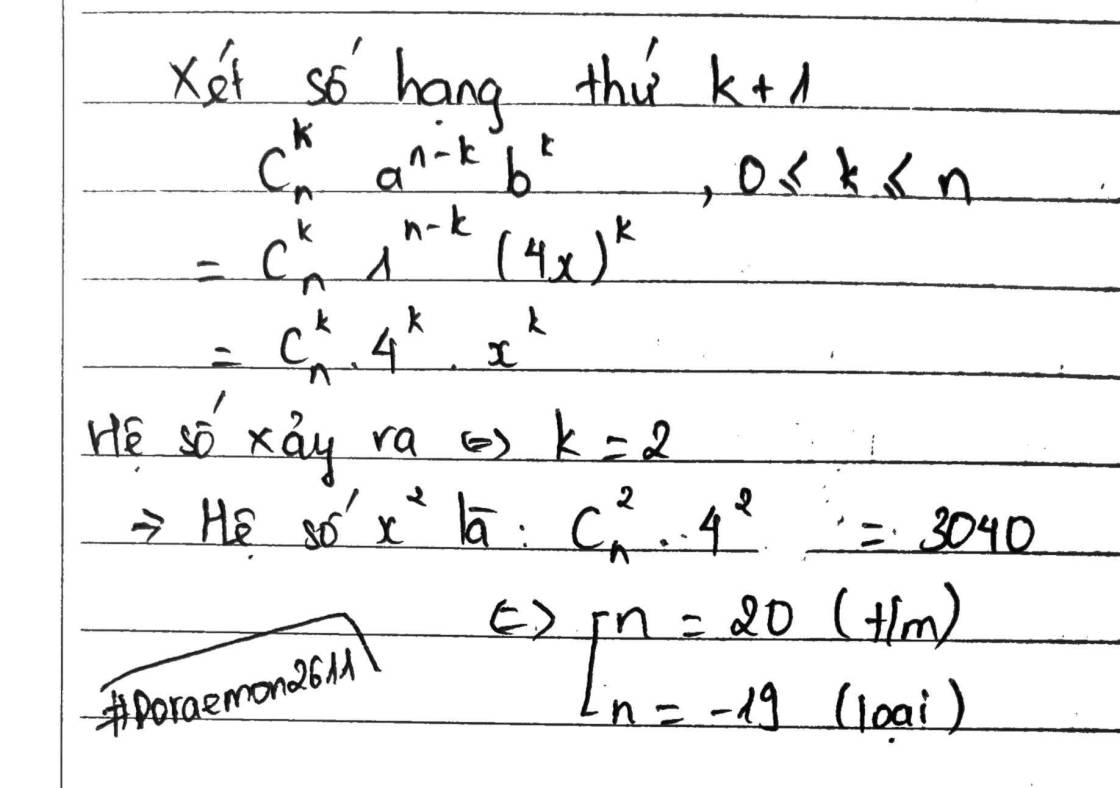 Xét số hạng thứ k+1
C_n^k a^{n-k} b^k , 0 ≤ k ≤ n
= C_n^k 1^{n-k} (4x)^k
= C_n^k . 4^k . x^k
Hệ số xảy ra <=> k = 2
=> Hệ số x^2 là : C_n^2 . 4^2 = 3040
<=> [ n = 20 (t/m)
n = -19 (loại)
#Doraemon2611